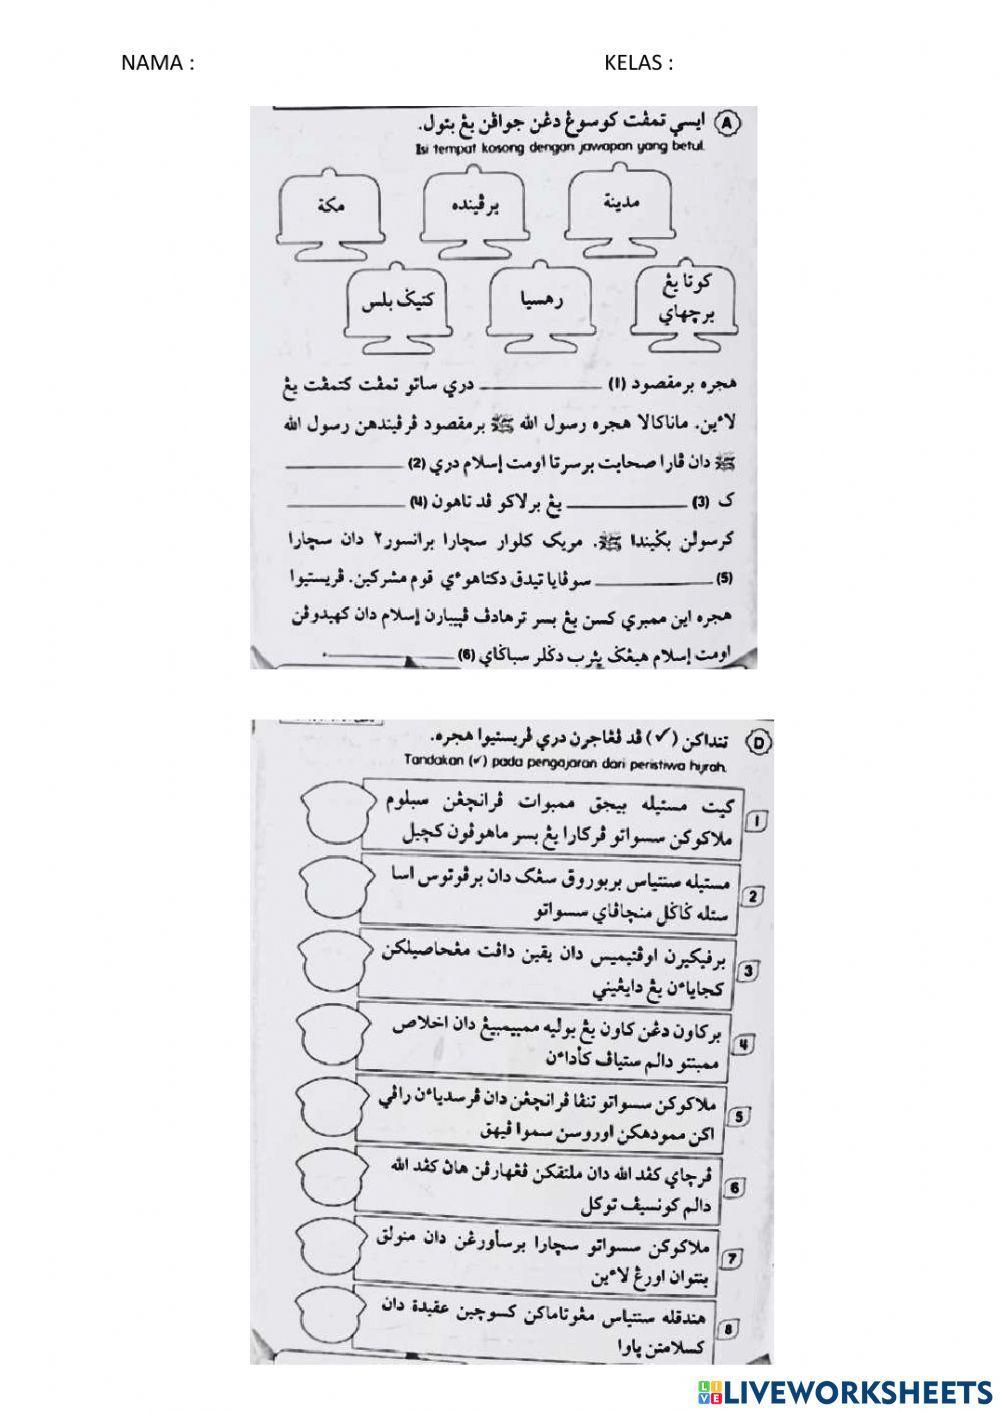 NAMA :
KELAS :
A ايسي تمڤت كوسوڠ دڠن جواڤن يڠ بتول.
Isi tempat kosong dengan jawapan yang betul.
مدينة
برڤينده
مكة
كوتا يڠ
برچهاي
رهسيا
كتيݢ بلس
هجره برمقصود (1) ____________ دري ساتو تمڤت كتمڤت يڠ
لاءين. ماناكالا هجره رسول الله ﷺ برمقصود ڤرڤيندهن رسول الله
ﷺ دان ڤارا صحابت برسرتا اومت إسلام دري (2) ____________
ك (3) ____________ يڠ برلاكو ڤد تاهون (4) ____________
كرسولن بݢيندا ﷺ. مريك كلوار سچارا برانسور٢ دان سچارا
(5) ____________ سوڤايا تيدق دكتاهوءي قوم مشركين. ڤريستيوا
هجره اين ممبري كسن يڠ بسر ترهادڤ ڤڽيبارن إسلام دان كهيدوڤن
اومت إسلام هيڠݢ يثرب دݢلر سباݢاي (6) ____________.
D تنداكن (✓) ڤد ڤڠاجرن دري ڤريستيوا هجره.
Tandakan (✓) pada pengajaran dari peristiwa hijrah.
1 كيت مستيله بيجق ممبوات ڤرانچڠن سبلوم
ملاكوكن سسواتو ڤركارا يڠ بسر ماهوڤون كچيل
2 مستيله سنتياس بربوروق سڠك دان برڤوتوس اسا
سئله ݢاݢل منچاڤاي سسواتو
3 برفيكيرن اوڤتيميس دان يقين داڤت مڠحاصيلكن
كجاياءن يڠ دايڤيني
4 بركاون دڠن كاون يڠ بوليه ممبيمبيڠ دان اخلاص
ممبنتو دالم ستياڤ كأداءن
5 ملاكوكن سسواتو تنڤا ڤرانچڠن دان ڤرسدياءن راڤي
اكن ممودهكن اوروسن سموا ڤيهق
6 ڤرچاي كڤد الله دان ملتقكن ڤڠهارڤن هاڽ كڤد الله
دالم كونسيڤ توكل
7 ملاكوكن سسواتو سچارا برسأورڠن دان منولق
بنتوان اورڠ لاءين
8 هندقله سنتياس مڠوتاماكن كسوچين عقيدة دان
كسلامتن ڽاوا
LIVEWORKSHEETS